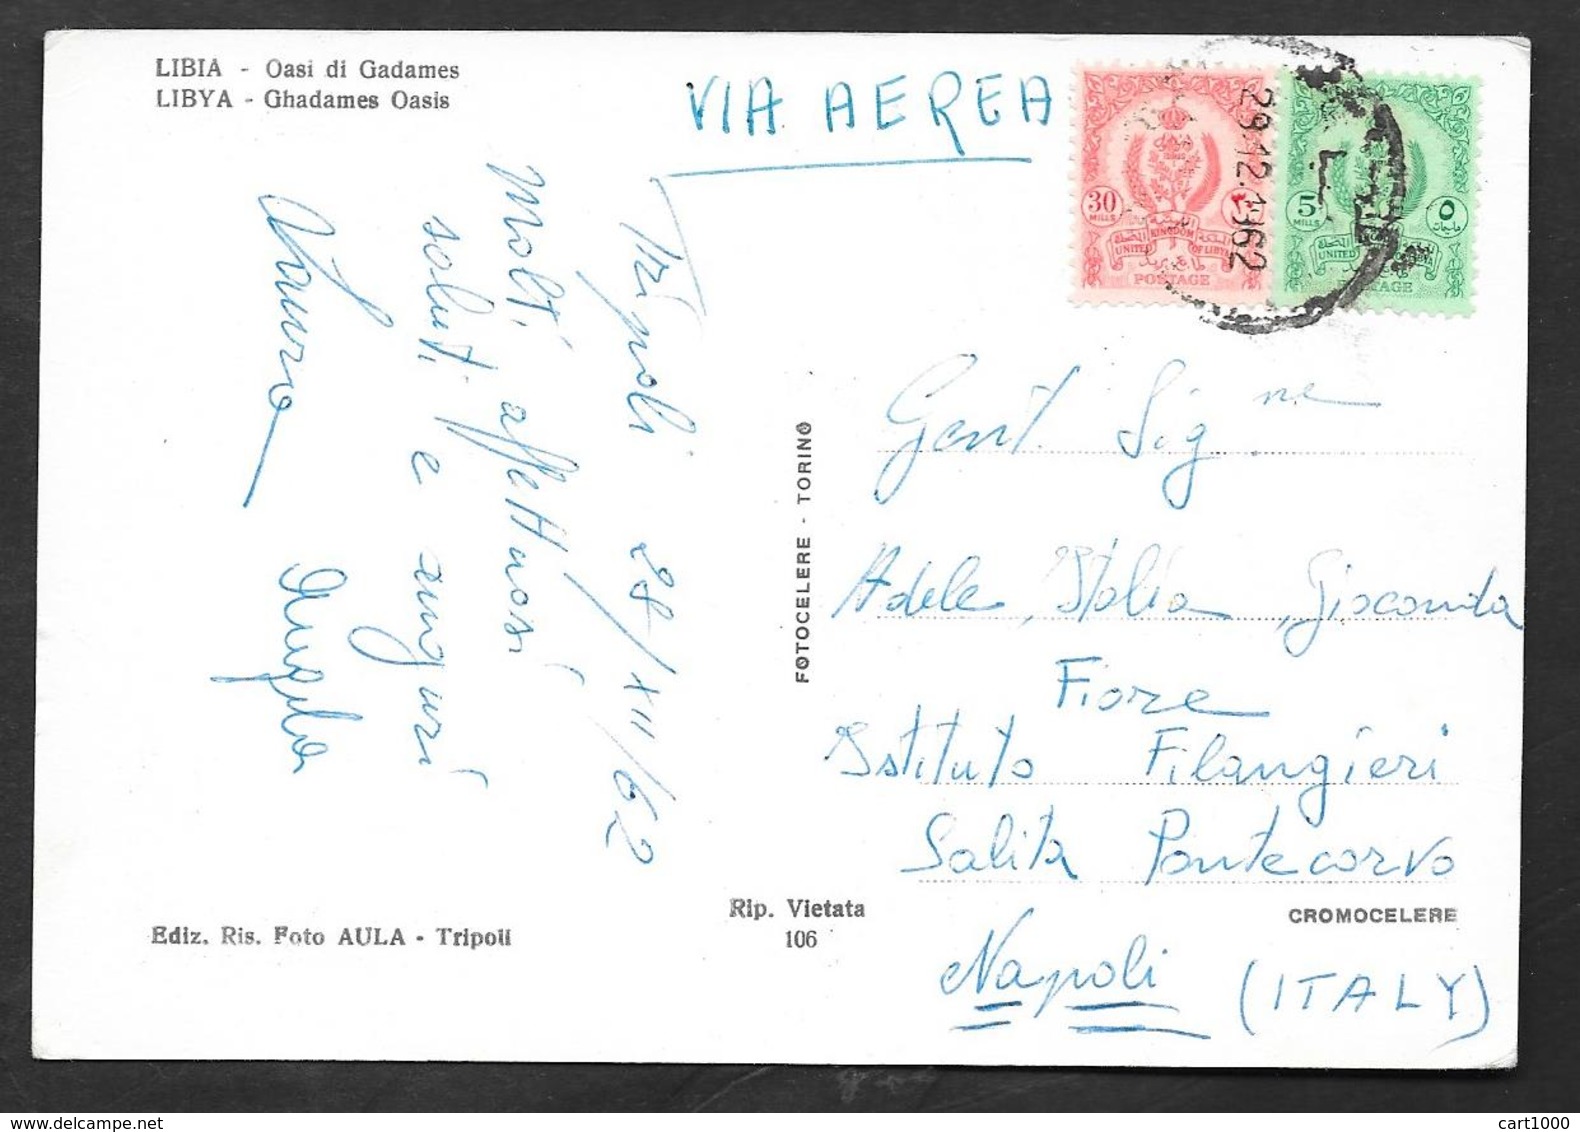 LIBIA - Oasi di Gadames
LIBYA - Ghadames Oasis
VIA AEREA
Tripoli 28/XII/62
Molti affettuosi
saluti e auguri
Angela
30
MILLS
UNITED KINGDOM OF LIBYA
POSTAGE
5
MILLS
٥
UNITED
29.12.1962
FOTOCELERE - TORINO
Gent. Sig.ne
Adele, Italia, Gioconda
Fiore
Istituto Filangieri
Salita Pontecorvo
Napoli (ITALY)
Rip. Vietata
106
CROMOCELERE
Ediz. Ris. Foto AULA - Tripoli
cart1000